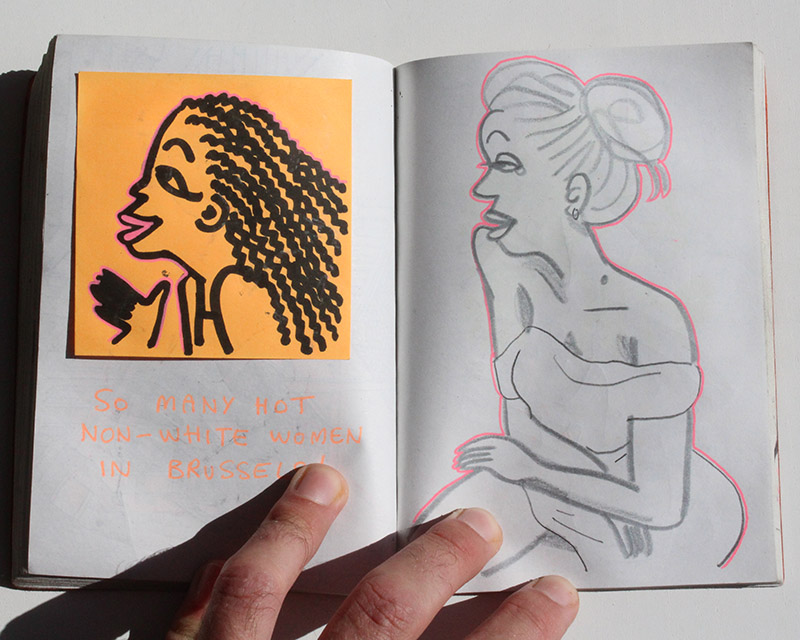 SO MANY HOT
NON-WHITE WOMEN
IN BRUSSELS!